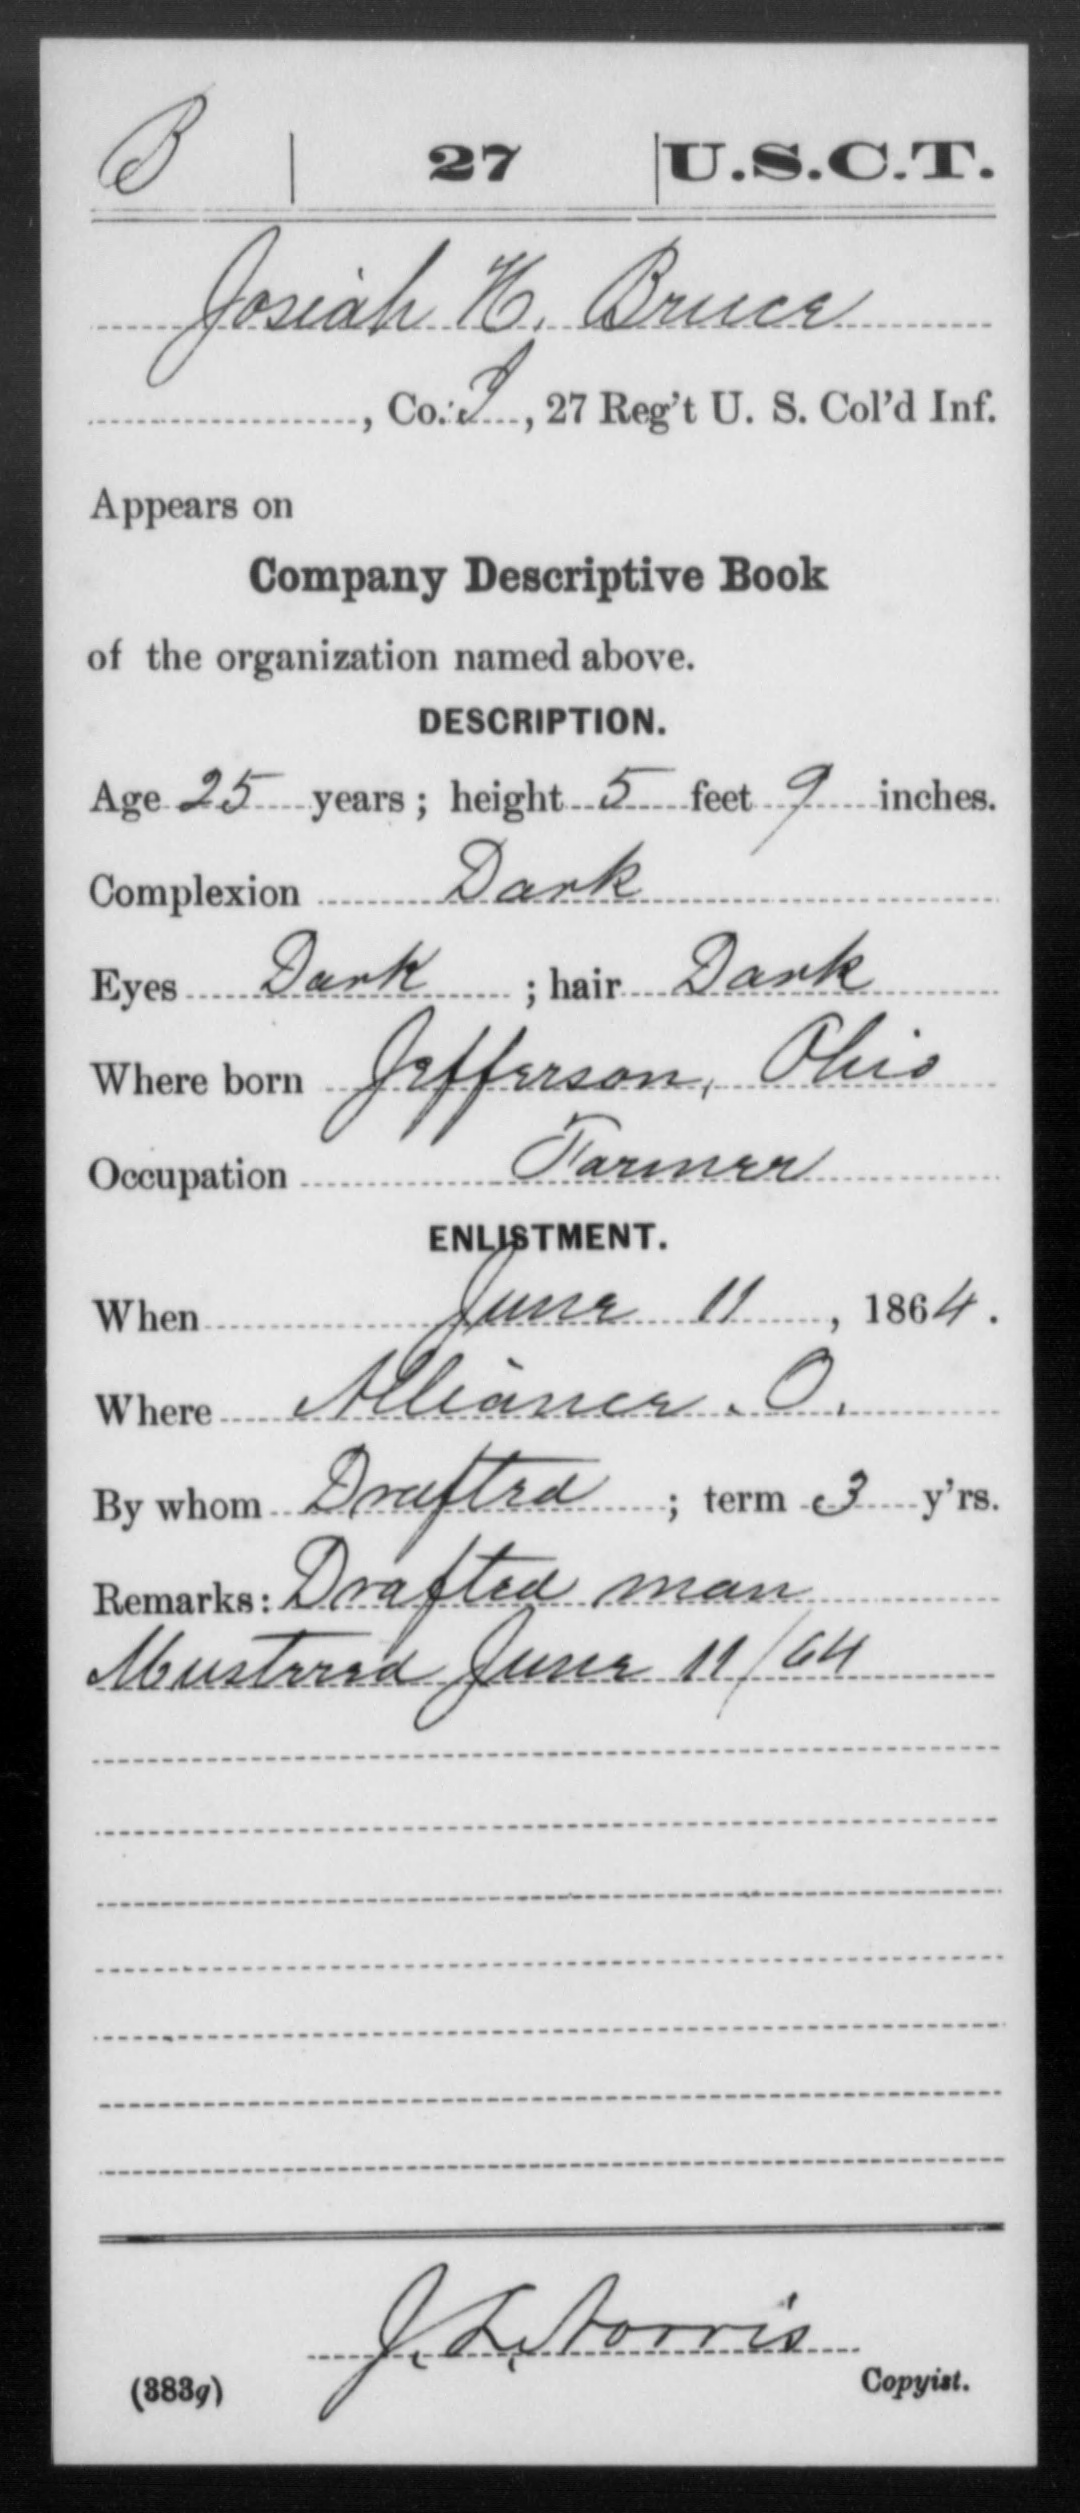 B | 27 | U.S.C.T.
Josiah H. Bruce
, Co. I, 27 Reg't U. S. Col'd Inf.
Appears on
Company Descriptive Book
of the organization named above.
DESCRIPTION.
Age 25 years; height 5 feet 9 inches.
Complexion Dark
Eyes Dark ; hair Dark
Where born Jefferson, Ohio
Occupation Farmer
ENLISTMENT.
When June 11, 1864.
Where Alliance. O.
By whom Drafted ; term 3 y'rs.
Remarks: Drafted man
Mustered June 11/64
J. L. Norris
(383g) Copyist.